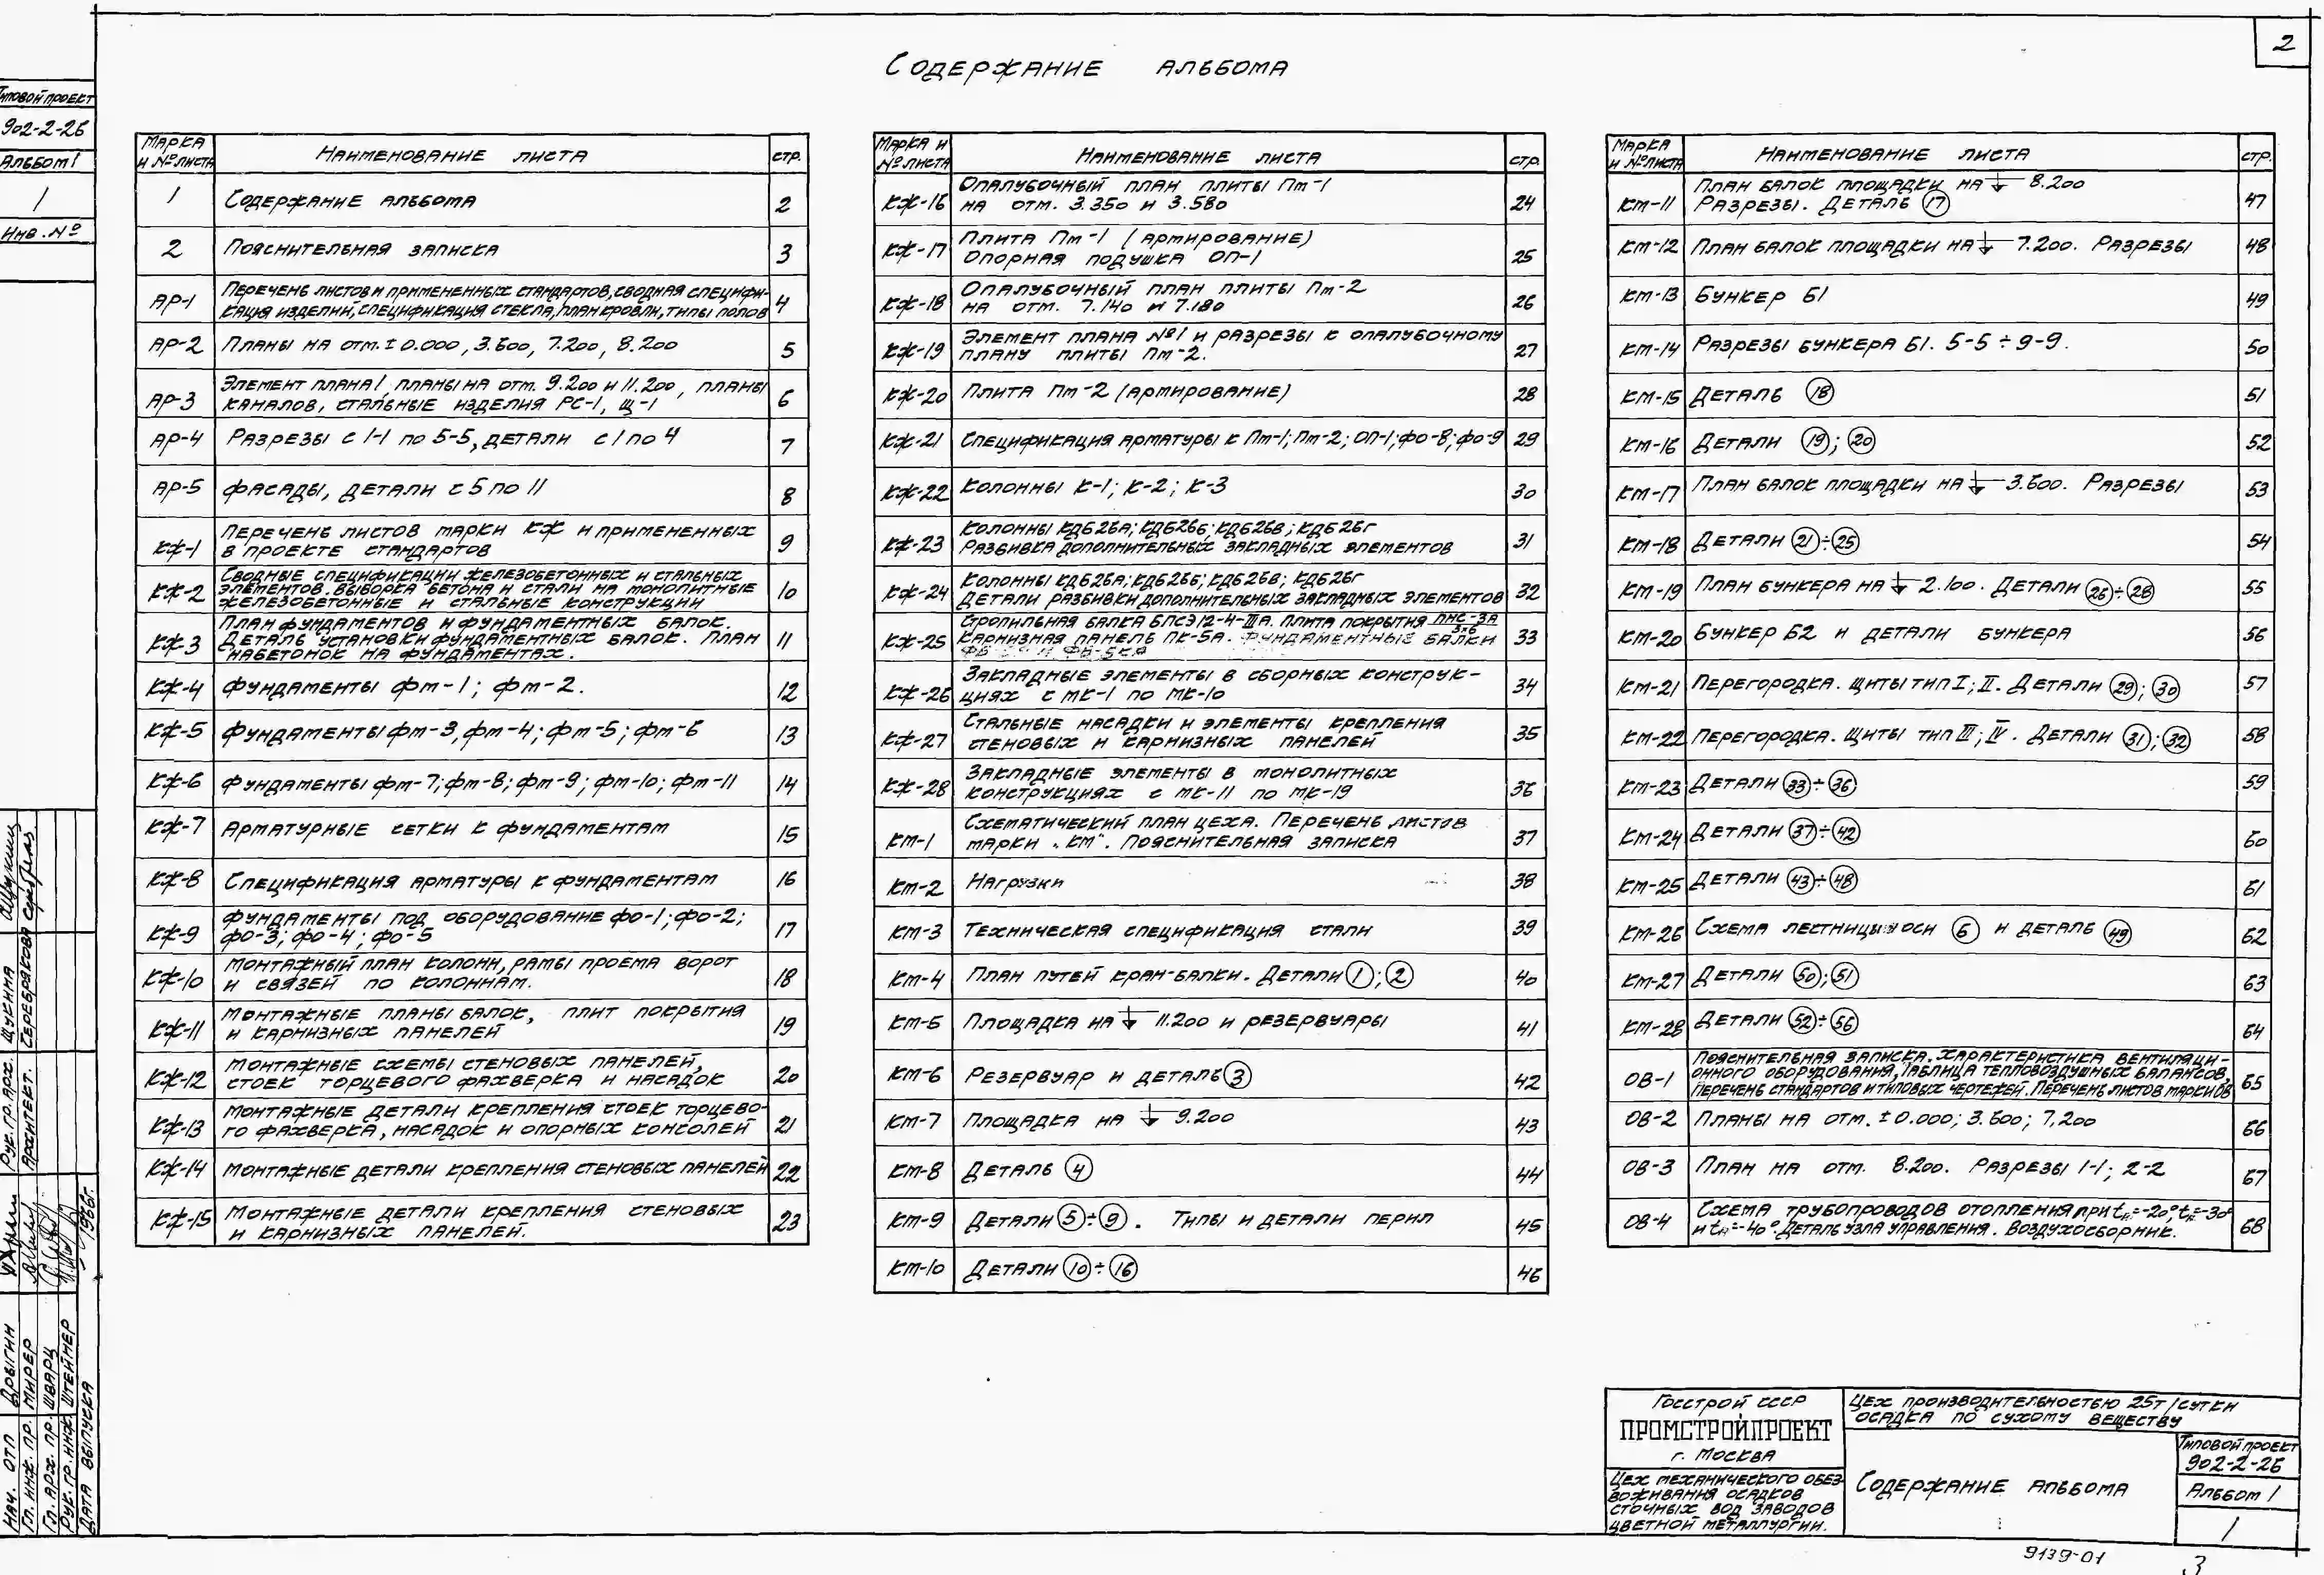 2
Содержание альбома
Типовой проект
902-2-26
Альбом I
1
Инв. №
Марка и № листа Наименование листа стр.
1 Содержание альбома 2
2 Пояснительная записка 3
АР-1 Перечень листов и примененных стандартов, сводная специфи-
кация изделий, спецификация стекла, план кровли, типы полов 4
АР-2 Планы на отм. ±0.000, 3.600, 7.200, 8.200 5
АР-3 Элемент плана 1 планы на отм. 9.200 и 11.200, планы
каналов, стальные изделия РС-1, Щ-1 6
АР-4 Разрезы с 1-1 по 5-5, детали с 1 по 4 7
АР-5 Фасады, детали с 5 по 11 8
КЖ-1 Перечень листов марки КЖ и примененных
в проекте стандартов 9
КЖ-2 Сводные спецификации железобетонных и стальных
элементов. Выборка бетона и стали на монолитные
железобетонные и стальные конструкции 10
КЖ-3 План фундаментов и фундаментных балок.
Деталь установки фундаментных балок. План
набетонок на фундаментах. 11
КЖ-4 Фундаменты Фм-1; Фм-2. 12
КЖ-5 Фундаменты Фм-3, Фм-4; Фм-5; Фм-6 13
КЖ-6 Фундаменты Фм-7; Фм-8; Фм-9; Фм-10; Фм-11 14
КЖ-7 Арматурные сетки к фундаментам 15
КЖ-8 Спецификация арматуры к фундаментам 16
КЖ-9 Фундаменты под оборудование Фо-1; Фо-2;
Фо-3; Фо-4; Фо-5 17
КЖ-10 Монтажный план колонн, рамы проема ворот
и связей по колоннам. 18
КЖ-11 Монтажные планы балок, плит покрытия
и карнизных панелей 19
КЖ-12 Монтажные схемы стеновых панелей,
стоек торцевого фахверка и насадок 20
КЖ-13 Монтажные детали крепления стоек торцево-
го фахверка, насадок и опорных консолей 21
КЖ-14 Монтажные детали крепления стеновых панелей 22
КЖ-15 Монтажные детали крепления стеновых
и карнизных панелей. 23
Марка и № листа Наименование листа стр.
КЖ-16 Опалубочный план плиты Пм-1
на отм. 3.350 и 3.580 24
КЖ-17 Плита Пм-1 (армирование)
опорная подушка ОП-1 25
КЖ-18 Опалубочный план плиты Пм-2
на отм. 7.140 и 7.180 26
КЖ-19 Элемент плана №1 и разрезы к опалубочному
плану плиты Пм-2. 27
КЖ-20 Плита Пм-2 (армирование) 28
КЖ-21 Спецификация арматуры к Пм-1; Пм-2; ОП-1; Фо-8; Фо-9 29
КЖ-22 Колонны К-1; К-2; К-3 30
КЖ-23 Колонны КДБ26А; КДБ26Б; КДБ26В; КДБ26Г
Разбивка дополнительных закладных элементов 31
КЖ-24 Колонны КДБ26А; КДБ26Б; КДБ26В; КДБ26Г
Детали разбивки дополнительных закладных элементов 32
КЖ-25 Стропильная балка БПСЭ12-4-IIIА. Плита покрытия ПНС-3А/3х6
Карнизная панель ПК-5А. Фундаментные балки 33
КЖ-26 Закладные элементы в сборных конструк-
циях с МК-1 по МК-10 34
КЖ-27 Стальные насадки и элементы крепления
стеновых и карнизных панелей 35
КЖ-28 Закладные элементы в монолитных
конструкциях с МК-11 по МК-19 36
КМ-1 Схематический план цеха. Перечень листов
марки „КМ". Пояснительная записка 37
КМ-2 Нагрузки 38
КМ-3 Техническая спецификация стали 39
КМ-4 План путей кран-балки. Детали 1; 2 40
КМ-5 Площадка на 11.200 и резервуары 41
КМ-6 Резервуар и деталь 3 42
КМ-7 Площадка на 9.200 43
КМ-8 Деталь 4 44
КМ-9 Детали 5÷9. Типы и детали перил 45
КМ-10 Детали 10÷16 46
Марка и № листа Наименование листа стр.
КМ-11 План балок площадки на 8.200
Разрезы. Деталь 17 47
КМ-12 План балок площадки на 7.200. Разрезы 48
КМ-13 Бункер Б1 49
КМ-14 Разрезы бункера Б1. 5-5÷9-9. 50
КМ-15 Деталь 18 51
КМ-16 Детали 19; 20 52
КМ-17 План балок площадки на 3.600. Разрезы 53
КМ-18 Детали 21÷25 54
КМ-19 План бункера на 2.100. Детали 26÷28 55
КМ-20 Бункер Б2 и детали бункера 56
КМ-21 Перегородка. Щиты тип I; II. Детали 29; 30 57
КМ-22 Перегородка. Щиты тип III; IV. Детали 31; 32 58
КМ-23 Детали 33÷36 59
КМ-24 Детали 37÷42 60
КМ-25 Детали 43÷48 61
КМ-26 Схема лестницы у оси Б и деталь 49 62
КМ-27 Детали 50; 51 63
КМ-28 Детали 52÷56 64
ОВ-1 Пояснительная записка. Характеристика вентиляци-
онного оборудования, таблица тепловоздушных балансов,
перечень стандартов и типовых чертежей. Перечень листов марки ОВ 65
ОВ-2 Планы на отм. ±0.000; 3.600; 7,200 66
ОВ-3 План на отм. 8.200. Разрезы 1-1; 2-2 67
ОВ-4 Схема трубопроводов отопления при tн=-20°, tн=-30°
и tн=-40°. Деталь узла управления. Воздухосборник. 68
Рук. гр. арх. Щукина
Архитект. Серебрякова
Нач. отп Дрыгин
Гл. инж. пр. Мирер
Гл. арх. пр. Шварц
Рук. гр. инж. Штеймер
Дата выпуска 1966г.
Госстрой СССР
ПРОМСТРОЙПРОЕКТ
г. Москва
Цех механического обез-
воживания осадков
сточных вод заводов
цветной металлургии.
Цех производительностью 25т/сутки
осадка по сухому веществу
Содержание альбома
Типовой проект
902-2-26
Альбом I
1
9139-01
3